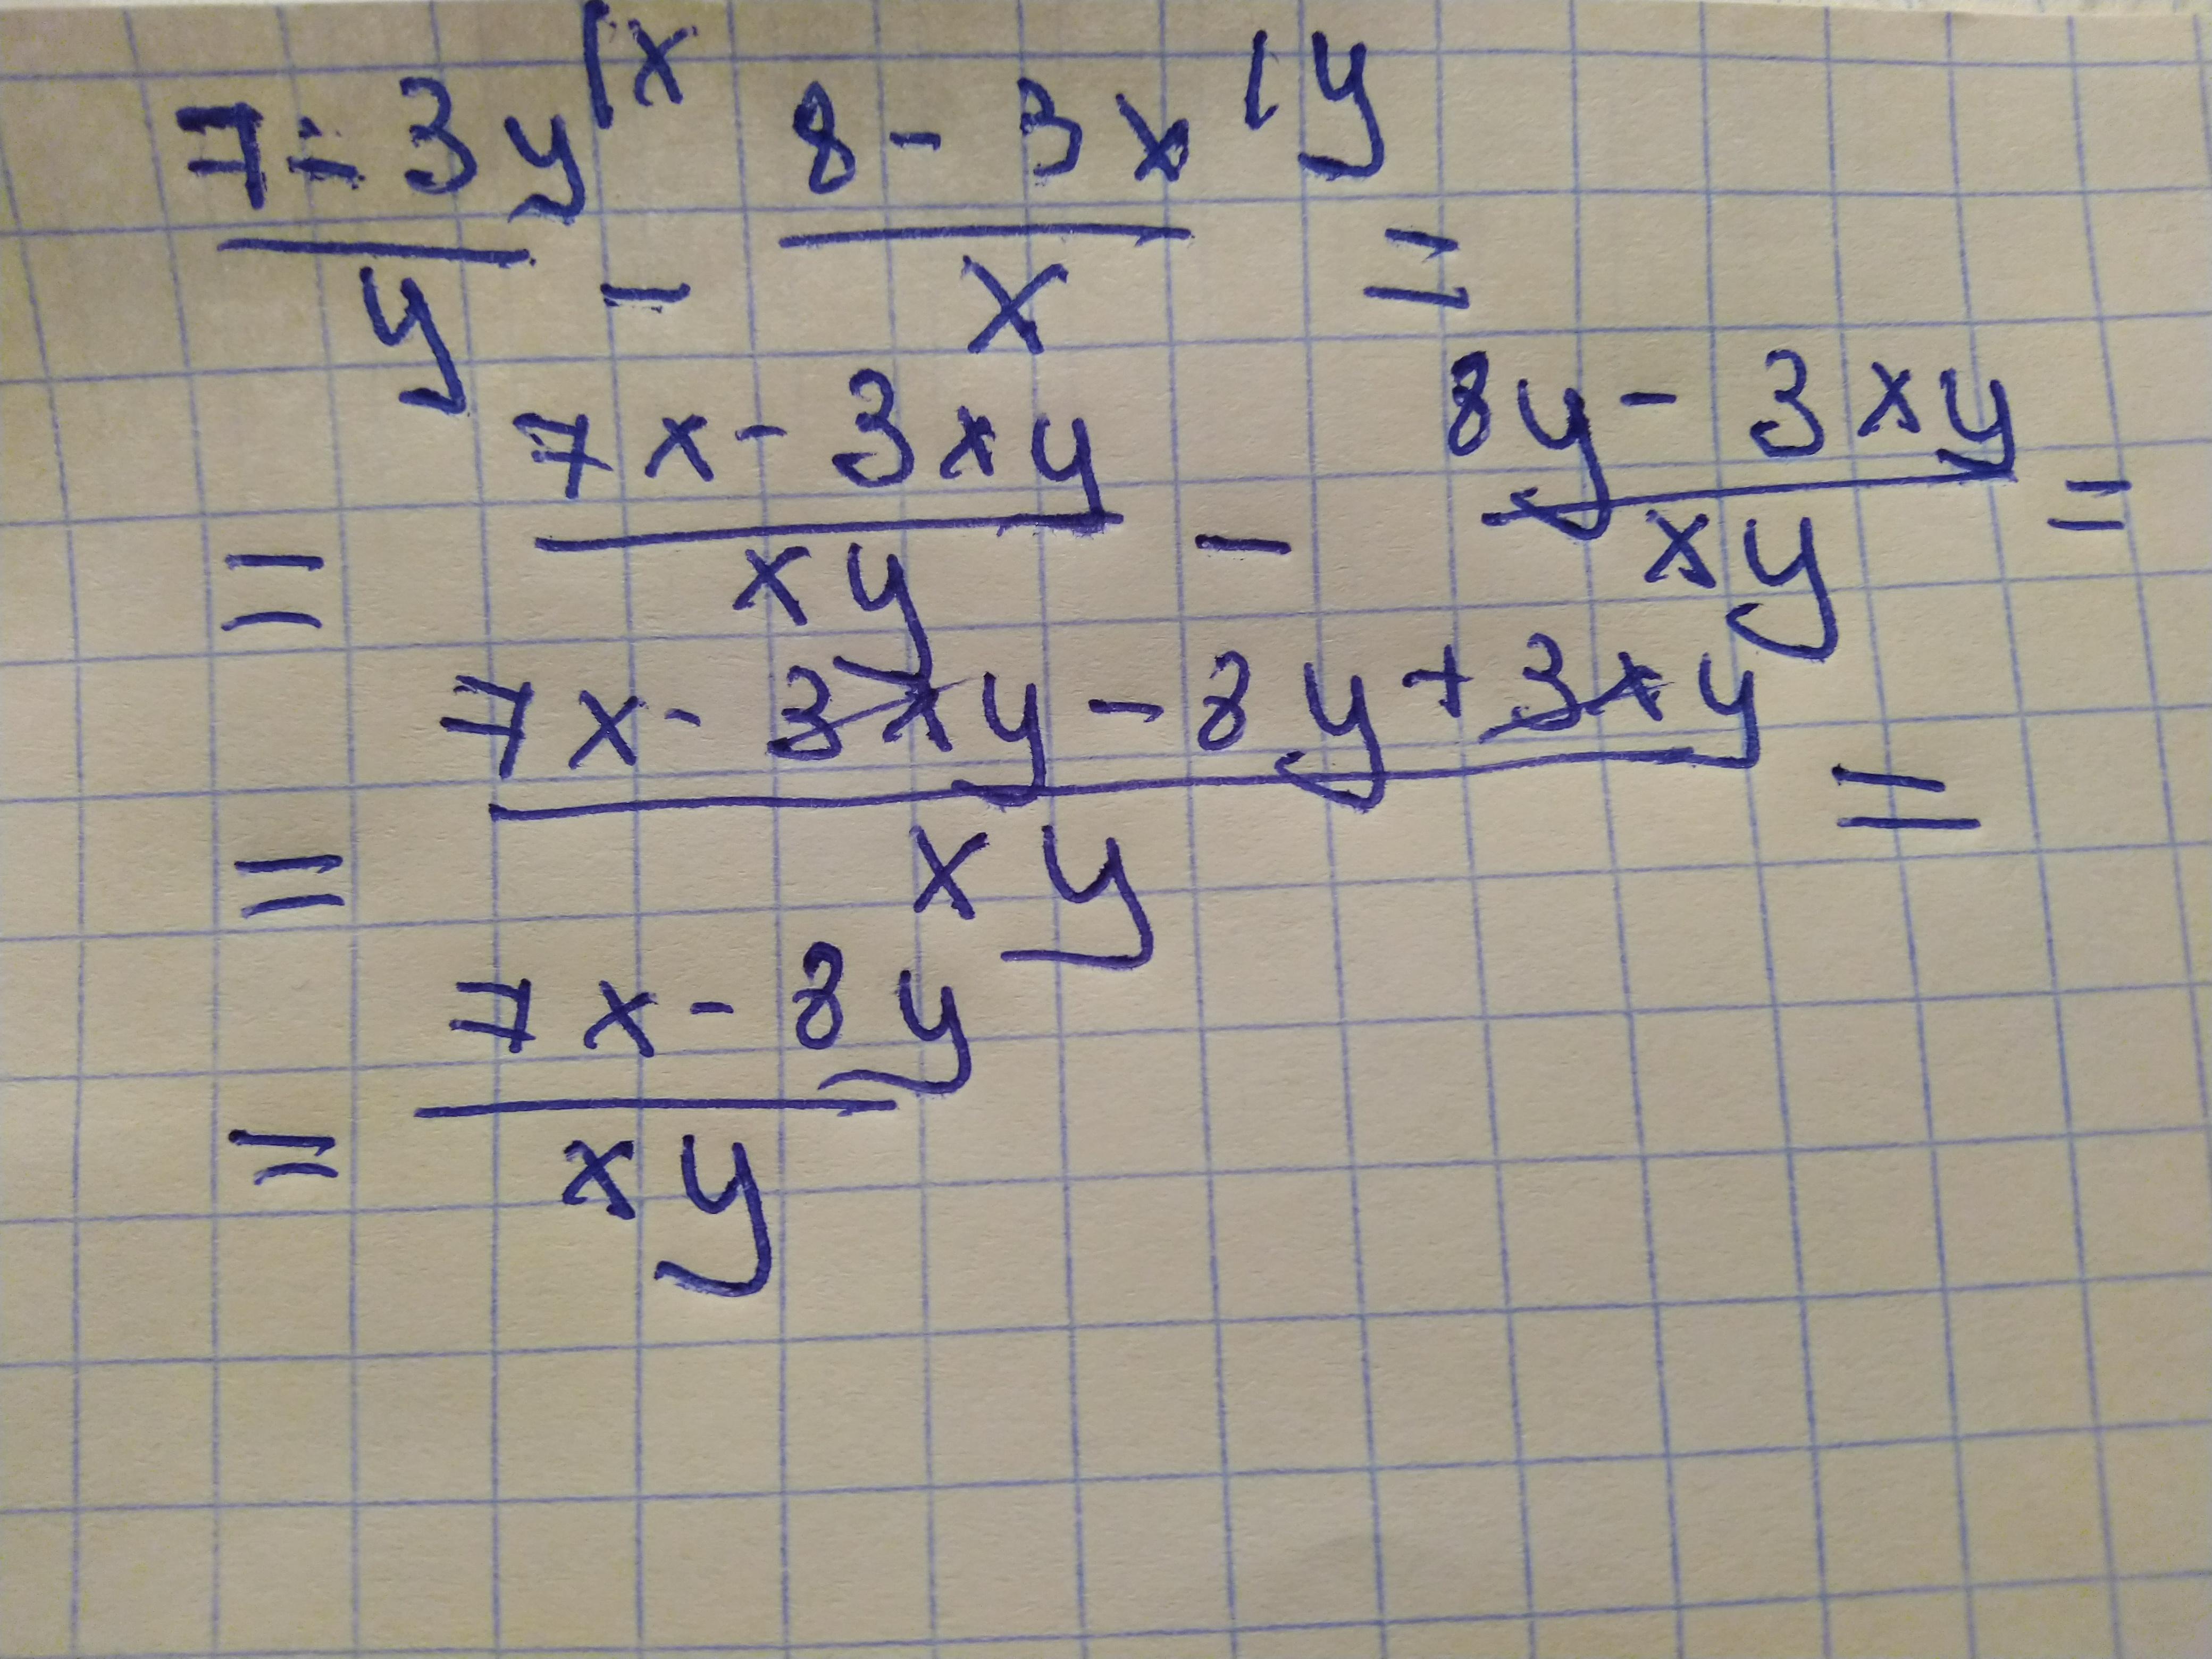 7-3y/x 8-3x/y
y - x =
7x-3xy 8y-3xy
= xy - xy =
7x-3xy-8y+3xy
= xy =
7x-8y
= xy